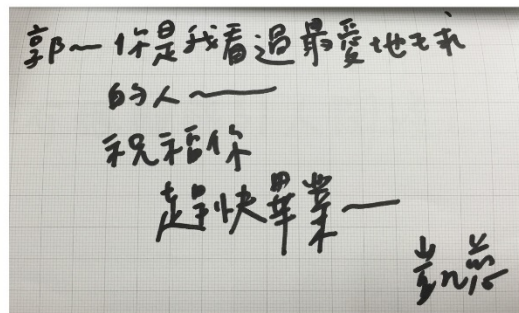 郭~你是我看過最愛地球
的人~
祝福你
趕快畢業~